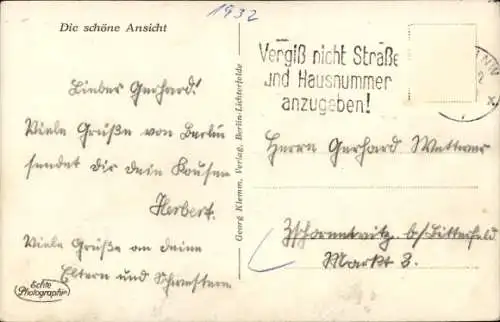 Die schöne Ansicht
1932
Vergiß nicht Straße
und Hausnummer
anzugeben!
Lieber Gerhard!
Viele Grüße von Berlin
sendet Dir dein Kousen
Herbert.
Viele Grüße an deine
Eltern und Schwestern
Echte
Photographie
Georg Klemm, Verlag, Berlin-Lichterfelde
Herrn Gerhard
Zschornewitz b/Bitterfeld
Markt 3.